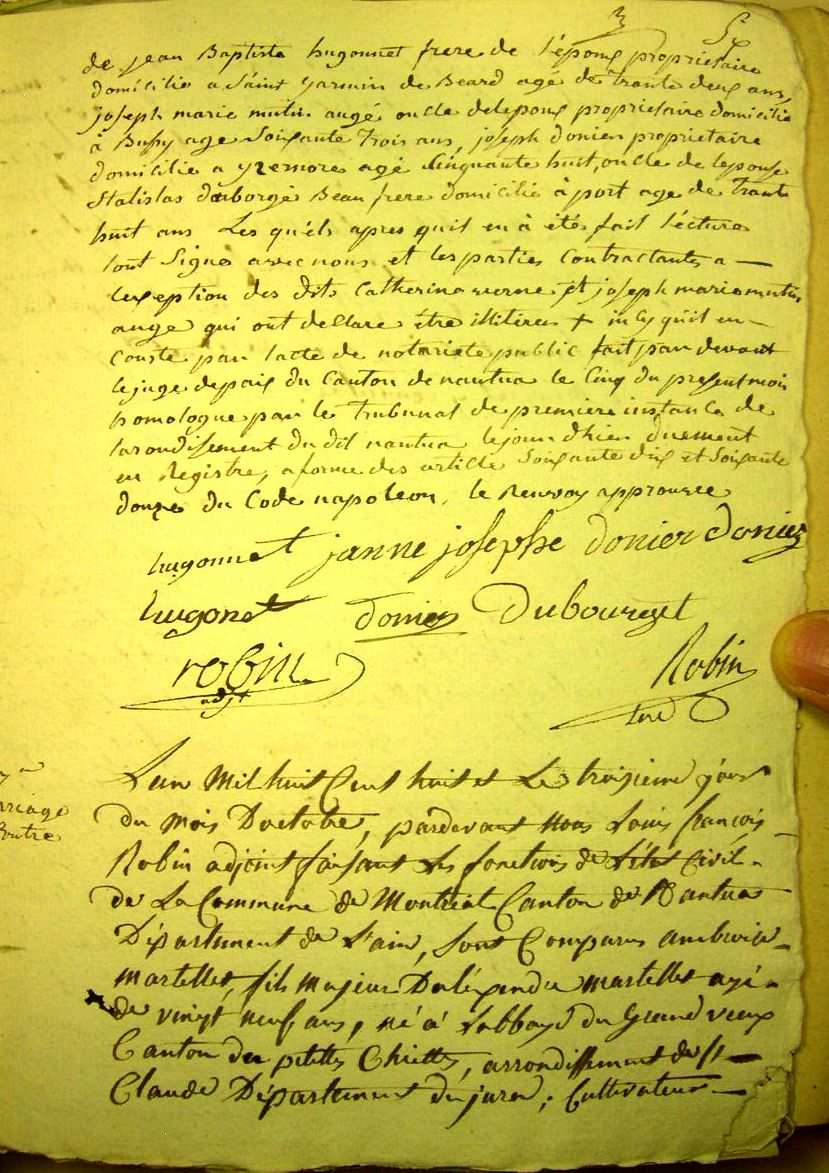 de jean Baptiste hugonnet frere de l'epoux proprietaire
domicilié a Saint Germin de Beard agé de trante deux ans,
joseph marie mutin augé oncle de lepoux proprietaire domicilié
à Bussy age Soixante trois ans, joseph donier propriétaire
domicilié a agé Cinquante huit, oncle de lepouse
Stalislas duborgé Beau frere domicilié à port age de trante
huit ans Les quels apres quil en à étés fait lecture
sont Signé avec nous et les parties Contractantes a —
lexeption des dits Catherine verne et joseph marie mutin
auge qui ont declare être illitirés + qu'il en —
Conste par lacte de notariete public fait par devant
le juge depaix du Canton de nantua le Cinq du present mois
homologue par le Tribunal de premiere instance de
larondissement du dit nantua lejour dhier duement
en Registré, a forme des article Soixante dix et Soixante
douze du Code napoleon. le Renvoy approuvee
hugonnet janne josephe donier donier
hugonet donier Dubourget
robin Robin
adjt
Lan Mil huit Cent huit et Le troisieme jour
du mois Doctobre, pardevant nous Louis françois
Robin adjoint faisant Les fonctions de L'état Civil
de La Commune de Montréal Canton de Nantua
Département de L'ain, Sont Comparus ambroise
martellet, fils majeur Daléxandre martellet agé
de vingt neuf ans, né à Labbaye du Grand vaux
Canton des petittes Chiettes, arrondissement de St —
Claude Département du jura, Cultivateur —